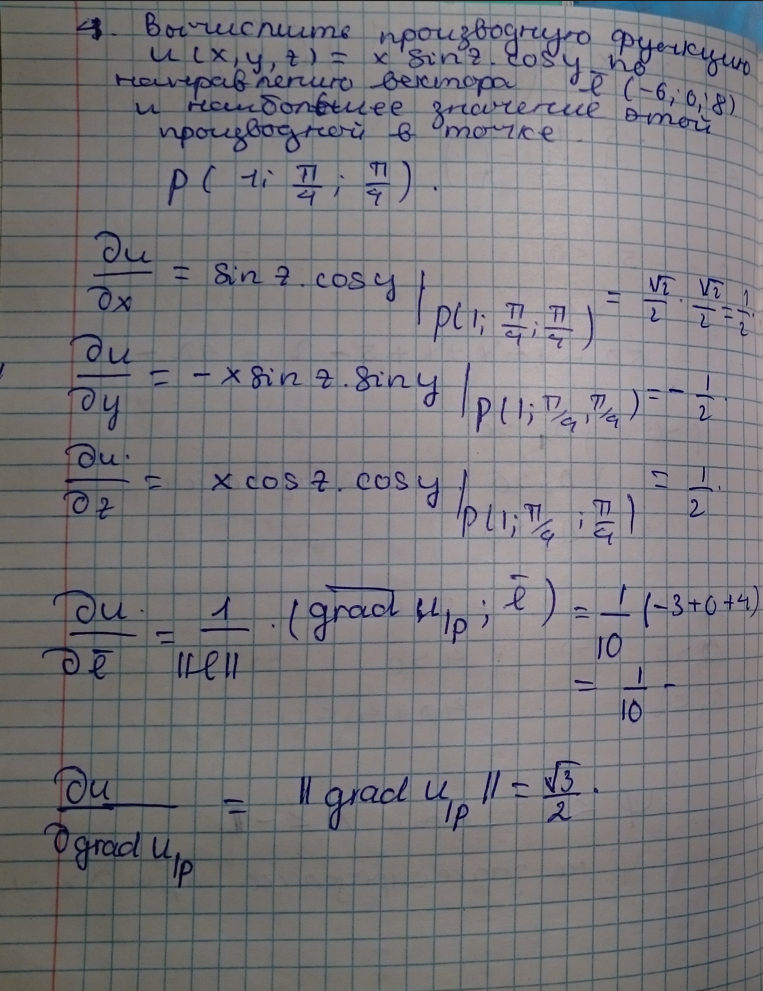 4. Вычислите производную функцию
u(x, y, z) = x sin z · cos y по
направлению вектора l̄ (-6; 0; 8)
и наибольшее значение этой
производной в точке
P( 1; π/4 ; π/4 ).
∂u/∂x = sin z · cos y |P(1; π/4 ; π/4) = √2/2 · √2/2 = 1/2.
∂u/∂y = - x sin z · sin y |P(1; π/4, π/4) = - 1/2.
∂u/∂z = x cos z · cos y |P(1; π/4 ; π/4) = 1/2.
∂u/∂l̄ = 1/||l|| · (grad u|P ; l̄) = 1/10 (-3+0+4)
= 1/10 -
∂u/∂grad u|P = || grad u|P || = √3/2.